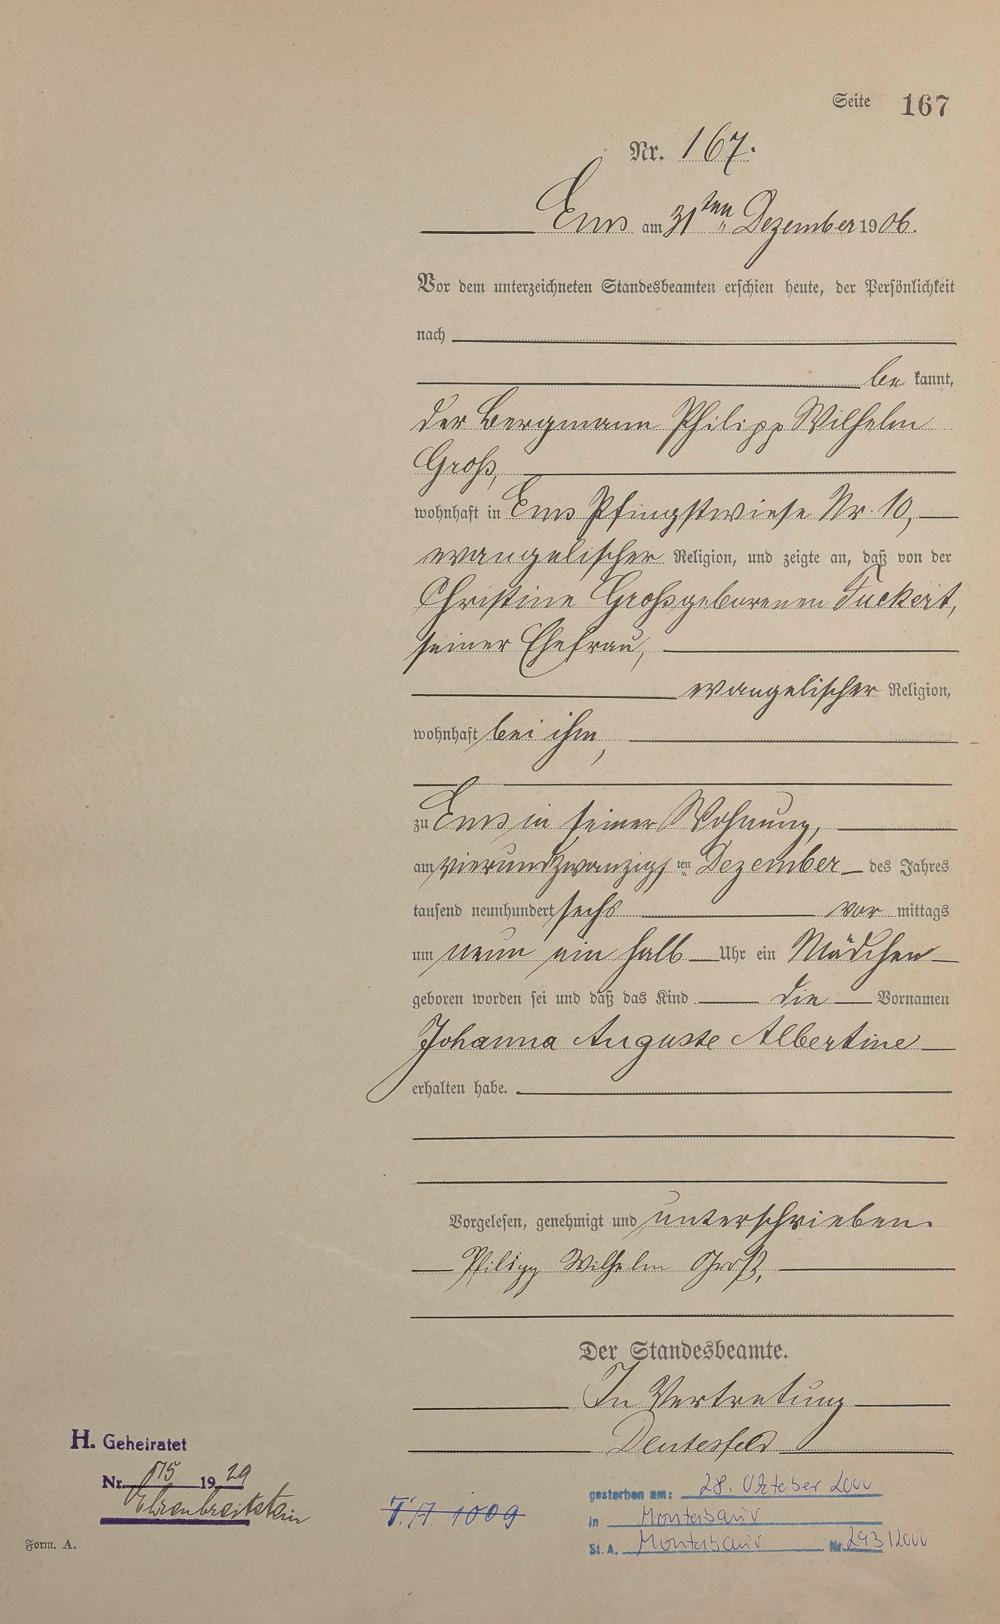 Seite 167
Nr. 167.
Ems am 31ten Dezember 1906.
Vor dem unterzeichneten Standesbeamten erschien heute, der Persönlichkeit
nach
be kannt,
der Bergmann Philipp Wilhelm
Groß,
wohnhaft in Ems Pfingstwiese Nr. 10,
evangelischer Religion, und zeigte an, daß von der
Christine Groß geborenen Tuckert,
seiner Ehefrau,
evangelischer Religion,
wohnhaft bei ihm,
zu Ems in seiner Wohnung,
am vierundzwanzigsten Dezember des Jahres
tausend neunhundert sechs vor mittags
um neun ein halb Uhr ein Mädchen
geboren worden sei und daß das Kind die Vornamen
Johanna Auguste Albertine
erhalten habe.
Vorgelesen, genehmigt und unterschrieben.
Philipp Wilhelm Groß,
Der Standesbeamte.
In Vertretung
H. Geheiratet
Nr. 1929
Ehrenbreitstein
T.A 1009
gestorben am: 28. Oktober 2000
in Montabaur
St. A. Montabaur Nr. 293/2000
Form. A.